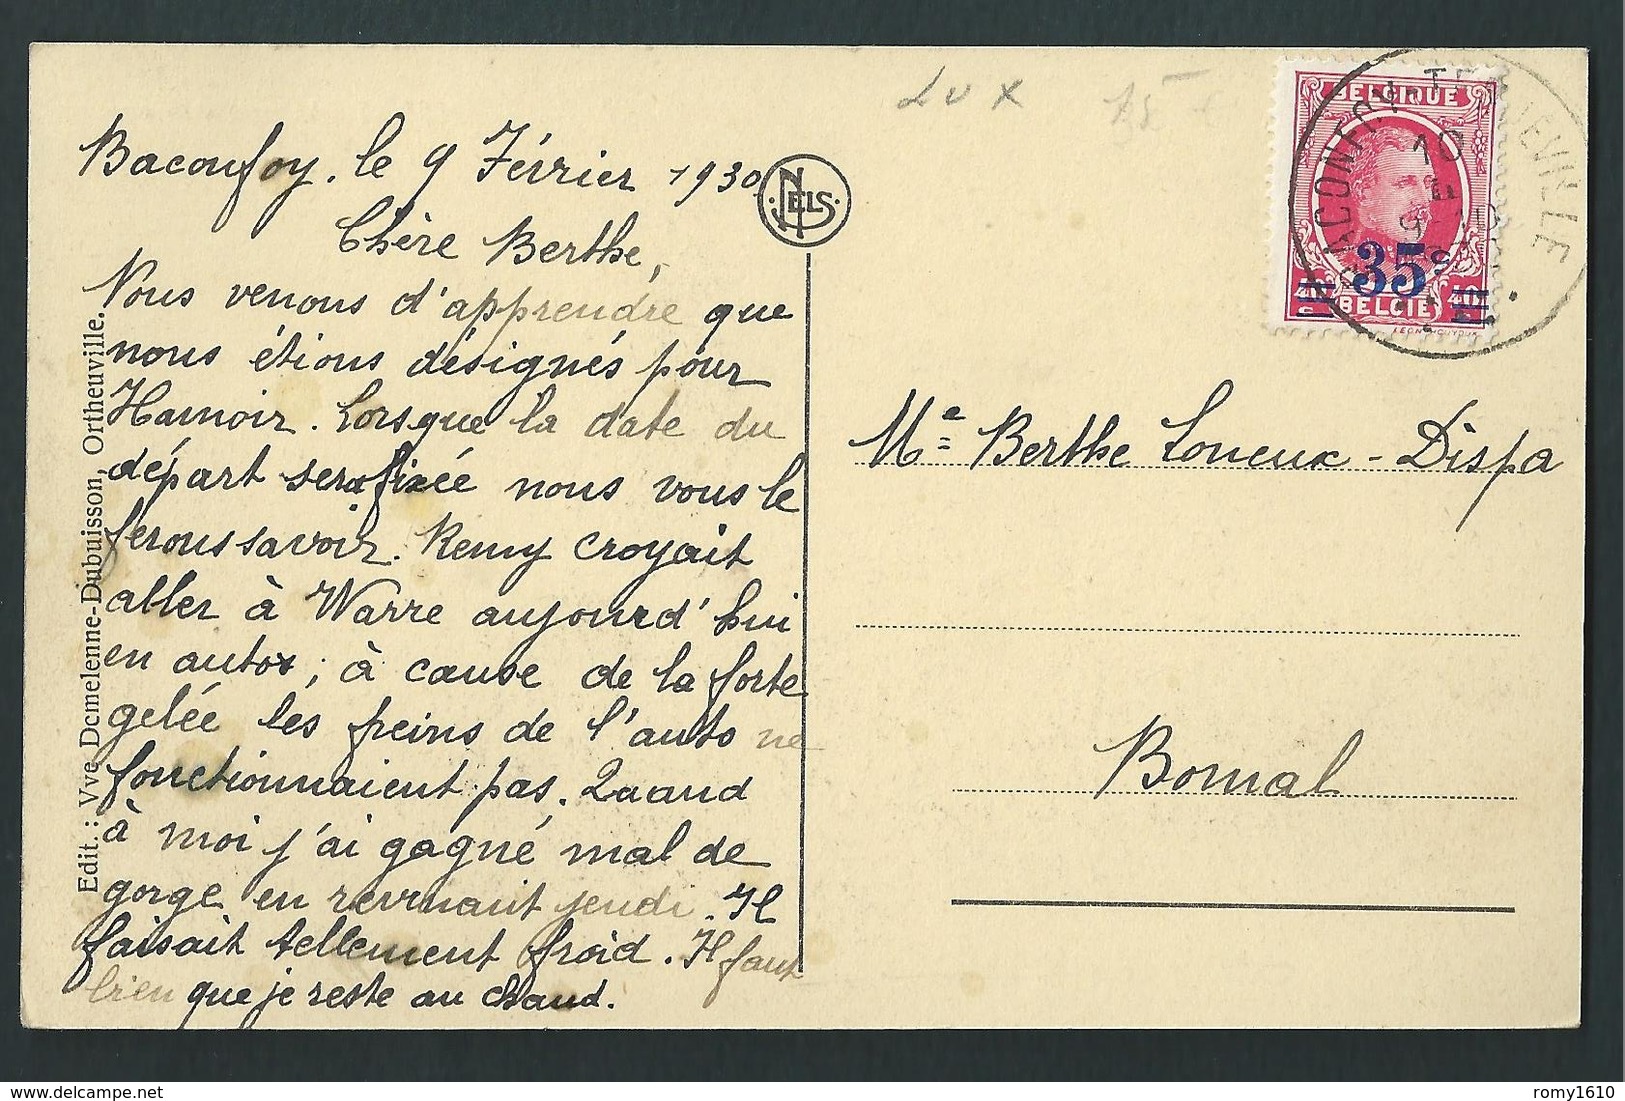 Lux
Baconfoy. le 9 Février 1930.
NELS
Chère Berthe,
Nous venons d'apprendre que
nous étions désignés pour
Hamoir. Lorsque la date du
départ sera fixée nous vous le
ferons savoir. Remy croyait
aller à Warre aujourd'hui
en auto; à cause de la forte
gelée les freins de l'auto ne
fonctionnaient pas. Quand
à moi j'ai gagné mal de
gorge en revenant jeudi. Il
faisait tellement froid. Il faut
bien que je reste au chaud.
Edit.: Vve Demelenne-Dubuisson, Ortheuville.
BELGIQUE
35c
40 BELGIË 40
BACONFOY-TENNEVILLE
10
Me Berthe Loneux - Dispa
Bomal
delcampe.net
romy1610